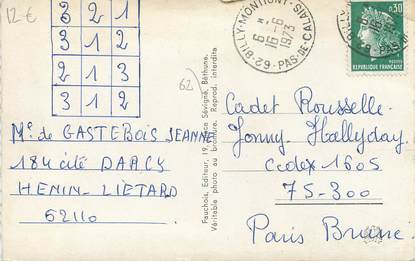 12€
3 2 1
3 1 2
2 1 3
3 1 2
62
BILLY-MONTIGNY
6 H
16-6
1973
62 - PAS-DE-CALAIS
0,30
POSTES
REPUBLIQUE FRANÇAISE
Me de GASTEBOIS JEANNE
184 cité DARCY
HENIN-LIETARD
62110
Fauchois, Editeur, 19, Sévigné, Béthune.
Véritable photo au bromure. Reprod. interdite
Cadet Rousselle
Jonny Hallyday
Cedex 1605
75-300
Paris Brune.